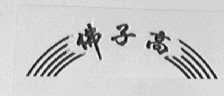 佛子高